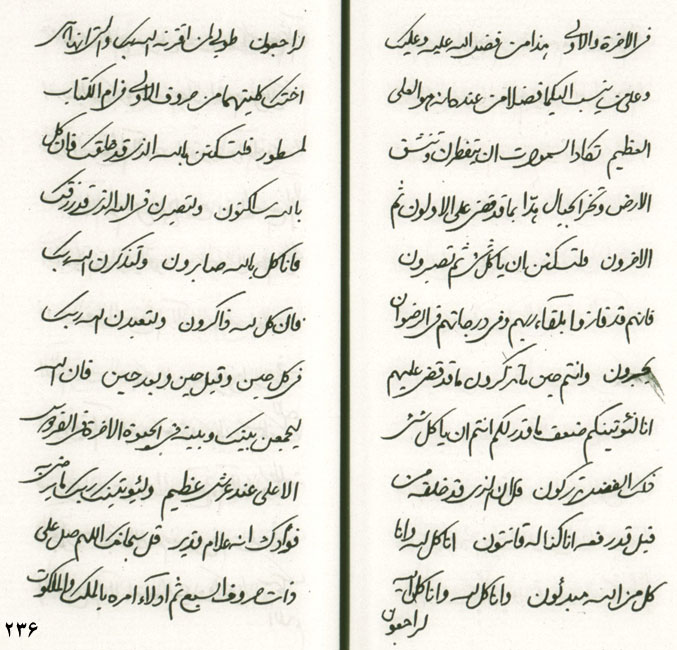 فی الاخرة والاولی هذا من فضل الله علیه و علیک
و علی من ینسب الیکما فضلا من عنده انه هو العلی
العظیم تکاد السموات ان یتفطرن و تنشق
الارض و تخر الجبال هدّا بما قد قضی علی الاولون ثم
الاخرون فلتسکنن ان یا کل شیء ثم تصبرون
فانهم قد فازوا بلقاء ربهم و فی درجاتهم فی الرضوان
یحبرون و انتم حین ما تذکرون ما قد قضی علیهم
انا لنؤتینکم ضعف ما قدر لکم انتم ان یا کل شیء
ذلک الفضل تدرکون قل ان الذی قد خلقه من
قبل قد رفعه انا کنا له قانتون انا کل لله و انا
کل من الله مبدئون و انا کل لله و انا کل الیه
لراجعون
لراجعون طوبی لمن اقرنه الله بک
اختک کلیتهما من حروف الاولی فی ام الکتاب
لمسطور فلتسکنن بالله الذی قد خلقک فان کل
بالله ساکنون و لتصبرن فی الله الذی قد رزقک
فانا کل بالله صابرون و لتذکرن الله ربک
فان کل لله ذاکرون و لتعبدن الله ربک
فی کل حین و قبل حین و بعد حین فان الله
لیجمعن بینک و بینه فی الحیوة الاخرة فی الفردوس
الاعلی عند عرش عظیم و لیؤتینک ربک ما یرضی به
فؤادک انه علام قدیر قل سبحانک اللهم صل علی
ذات حروف السبع ثم ادلاء امره بالملک و الملکوت
۲۳۶